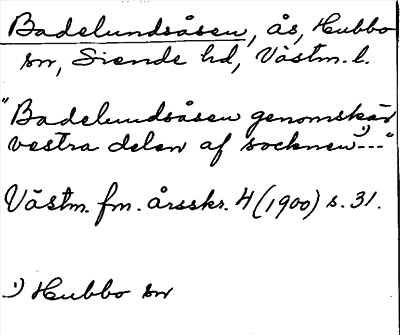 Badelundsåsen, ås, Hubbo
sn, Siende hd, Västm. l.
"Badelundsåsen genomskär
vestra delen af socknen¹)---"
Västm. fm. årsskr. 4 (1900) s. 31.
¹) Hubbo sn